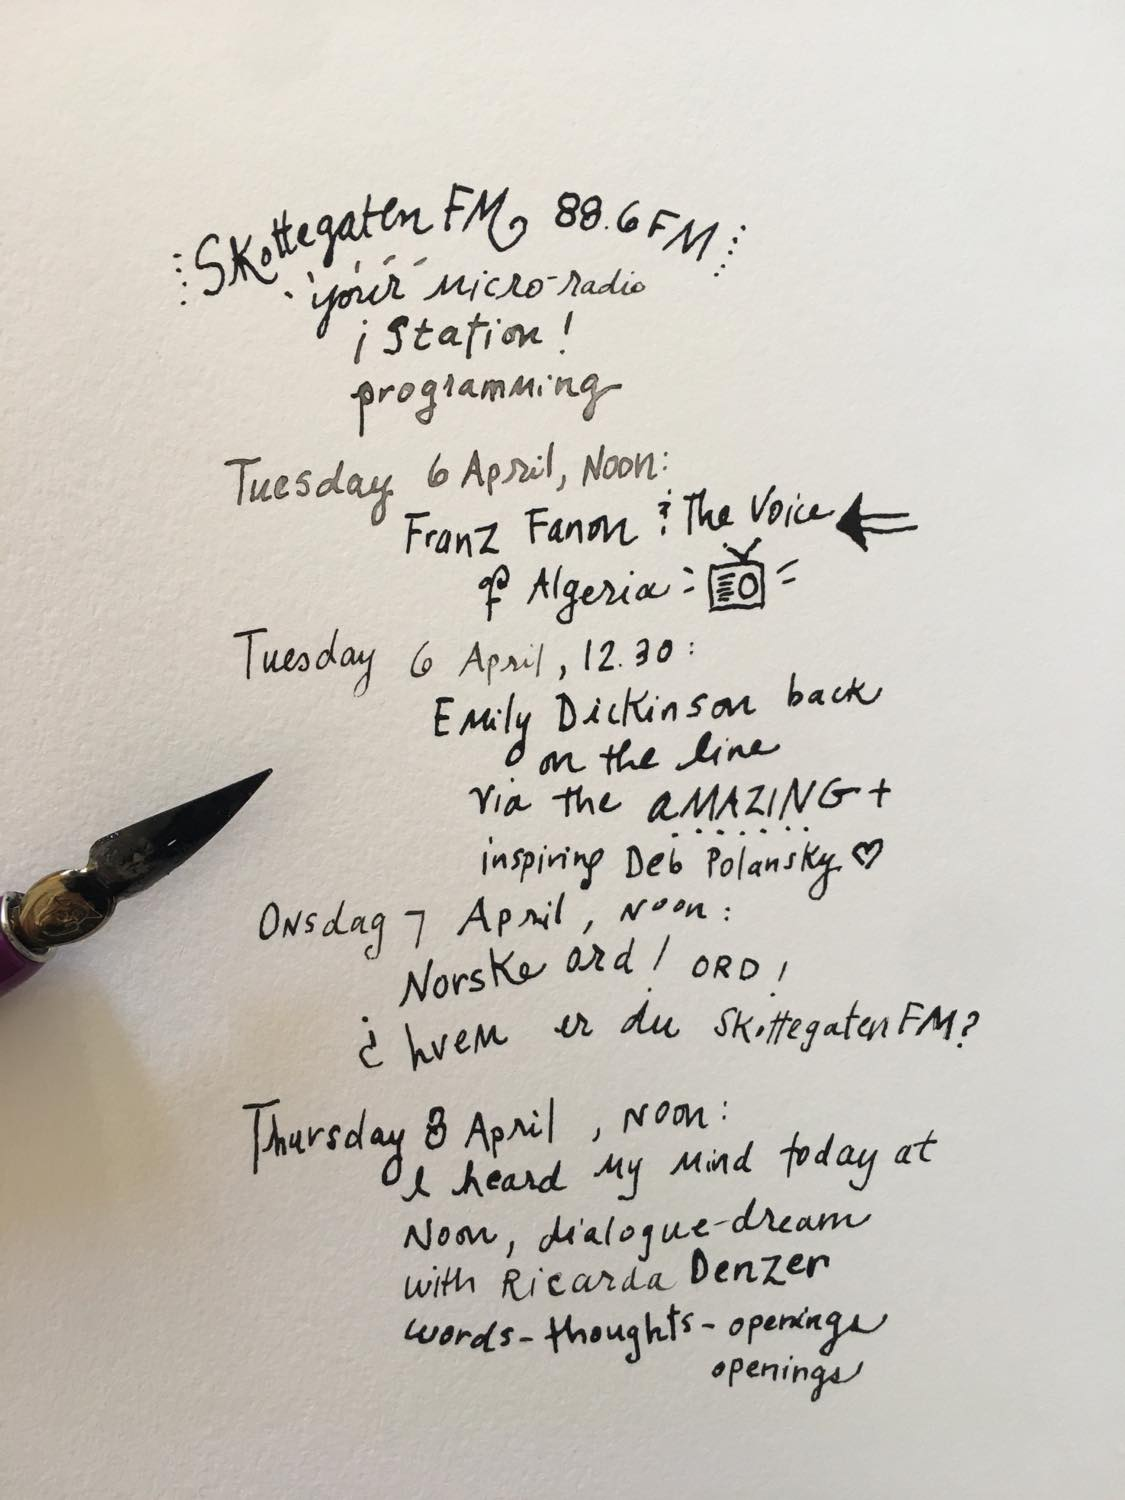 Skottegaten FM, 88.6 FM
your micro-radio
¡Station!
programming
Tuesday 6 April, Noon:
Franz Fanon & The Voice
of Algeria
Tuesday 6 April, 12.30:
Emily Dickinson back
on the line
via the aMAZING +
inspiring Deb Polansky ♡
Onsdag 7 April, Noon:
Norske ord! ORD!
¿ hvem er du Skottegaten FM?
Thursday 8 April, Noon:
I heard my mind today at
Noon, dialogue-dream
with Ricarda Denzer
words-thoughts-openings
openings